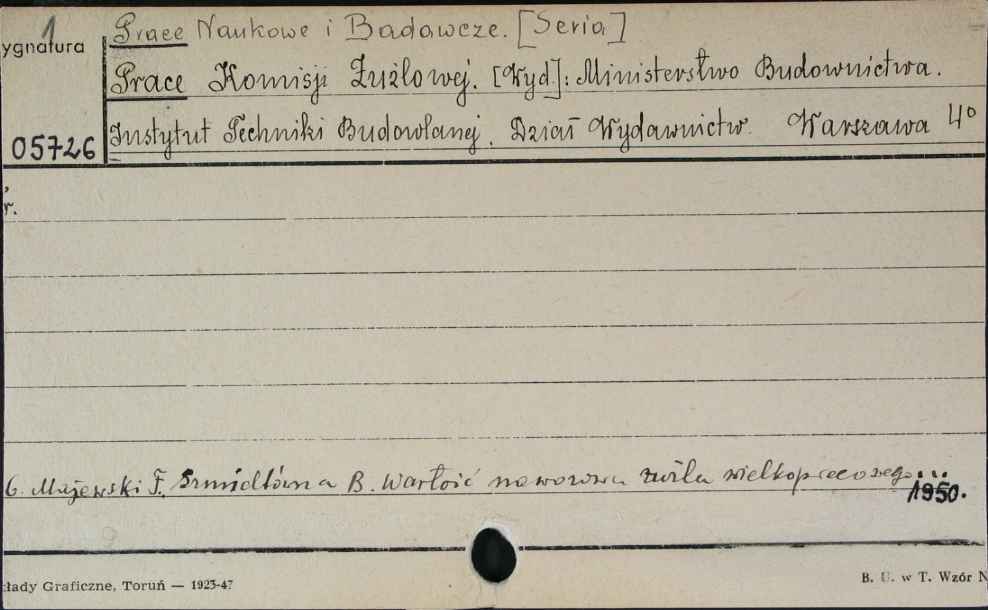 1 Prace Naukowe i Badawcze. [Seria]
ygnatura
Prace Komisji Żużlowej. [Wyd]: Ministerstwo Budownictwa.
05726 Instytut Techniki Budowlanej. Dział Wydawnictw. Warszawa 4°
r.
6. Majewski F. Szmidtówna B. Wartość nawozowa żużla wielkopiecowego...
1950.
kłady Graficzne, Toruń — 1923-47
B. U. w T. Wzór N